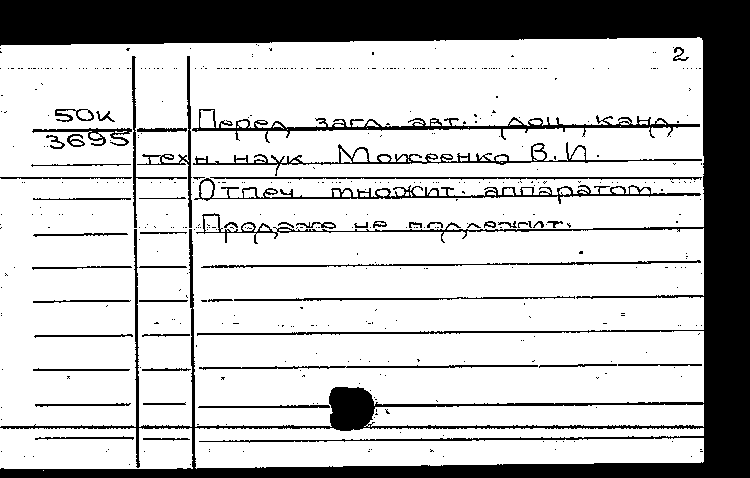 2
50к
3695
Перед загл. авт.: доц., канд.
техн. наук Моисеенко В.И.
Отпеч. множит. аппаратом.
Продаже не подлежит.